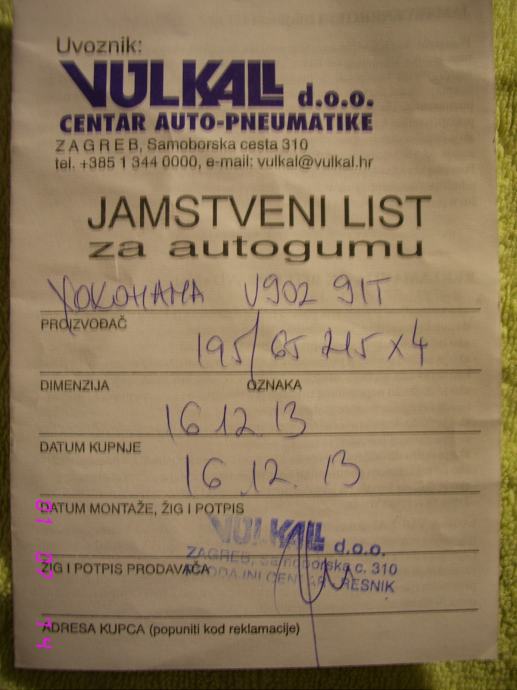 Uvoznik:
VULKAL d.o.o.
CENTAR AUTO-PNEUMATIKE
ZAGREB, Samoborska cesta 310
tel. +385 1 344 0000, e-mail: vulkal@vulkal.hr
JAMSTVENI LIST
za autogumu
YOKOHAMA V902 91T
PROIZVOĐAČ
195/65 215 x 4
DIMENZIJA OZNAKA
16.12.13
DATUM KUPNJE
16.12.13
DATUM MONTAŽE, ŽIG I POTPIS
VULKAL d.o.o.
ZAGREB, Samoborska c. 310
ŽIG I POTPIS PRODAVAČA
PRODAJNI CENTAR RESNIK
ADRESA KUPCA (popuniti kod reklamacije)